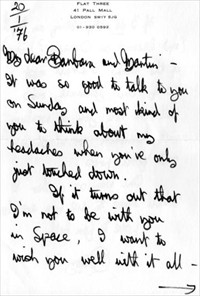 FLAT THREE
41 PALL MALL
LONDON SW1Y 5JG
20
1
1976
My dear Barbara and Martin -
It was so good to talk to you
on Sunday and most kind of
you to think about my
headaches when you've only
just touched down.
If it turns out that
I'm not to be with you
in Space, I want to
wish you well with it all -